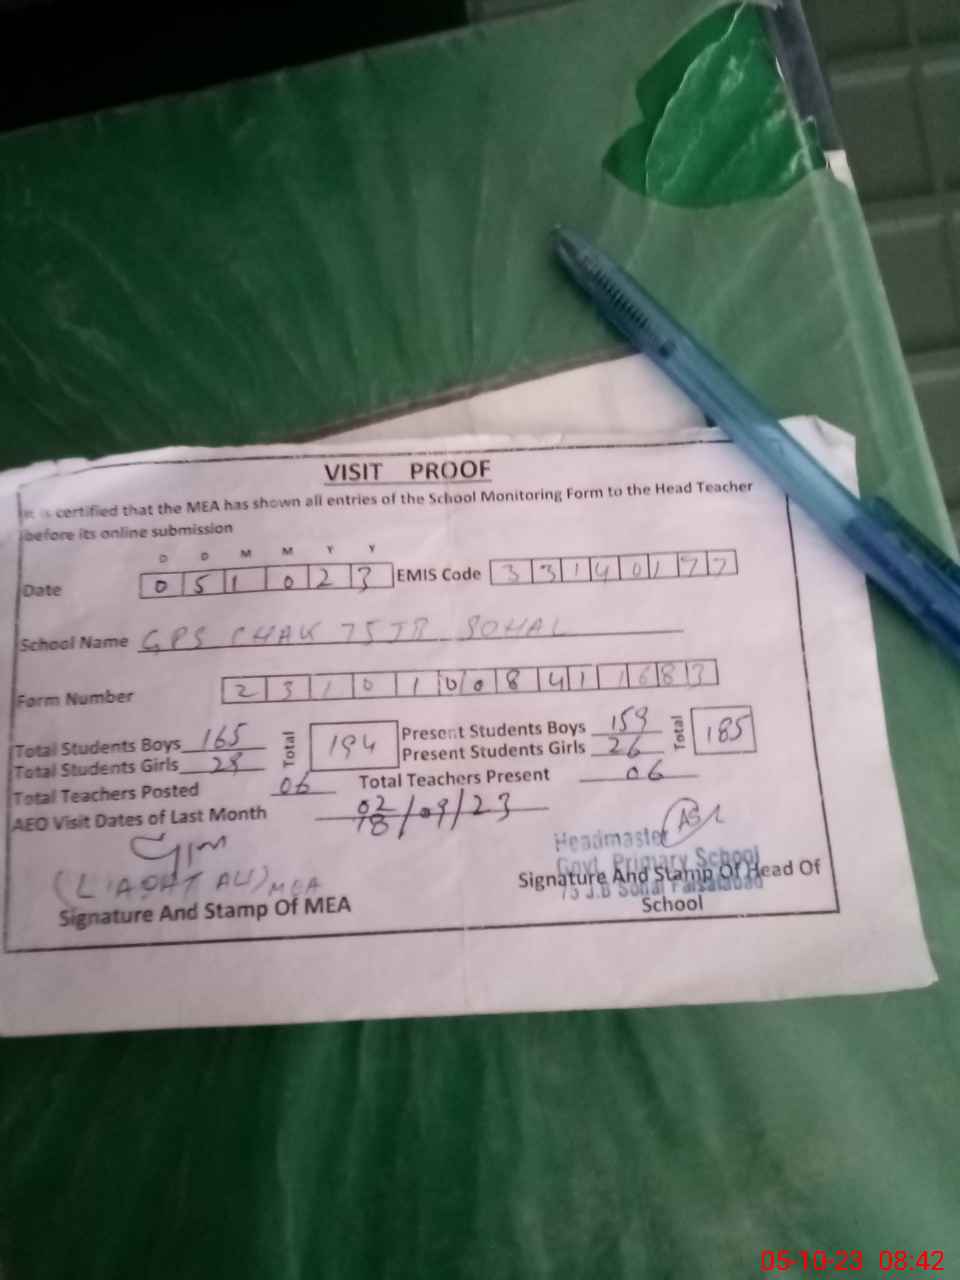 VISIT PROOF
It is certified that the MEA has shown all entries of the School Monitoring Form to the Head Teacher
before its online submission
D D M M Y Y
Date 0 5 1 0 2 3 EMIS Code 3 3 1 4 0 1 7 7
School Name GPS CHAK 75 JB SOHAL
Form Number 2 3 1 0 1 0 0 8 4 1 1 6 8 3
Total Students Boys 165 Total 194 Present Students Boys 159 Total 185
Total Students Girls 29 Present Students Girls 26
Total Teachers Posted 06 Total Teachers Present 06
AEO Visit Dates of Last Month 02/18/09/23
Headmaster
Govt. Primary School
75 J.B Sohal Faisalabad
(LIAQAT ALI) MEA
Signature And Stamp Of MEA
Signature And Stamp Of Head Of
School
05-10-23 08:42